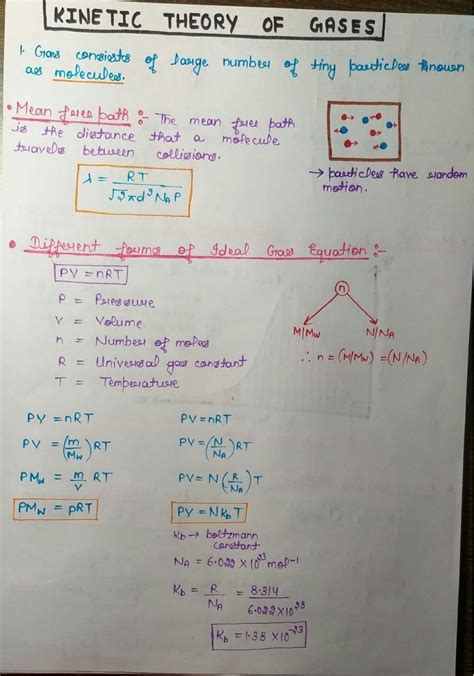 KINETIC THEORY OF GASES
1. Gas consists of large number of tiny particles known
as molecules.
• Mean free path :- The mean free path
is the distance that a molecule
travels between collisions.
λ = RT / √2πd²NAP
→ particles have random
motion.
• Different forms of Ideal Gas Equation :-
PV = nRT
P = Pressure
V = Volume
n = Number of moles
R = Universal gas constant
T = Temperature
n
M/Mw N/NA
∴ n = (M/Mw) = (N/NA)
PV = nRT
PV = (m/Mw) RT
PMw = m/V RT
PMw = ρRT
PV = nRT
PV = (N/NA) RT
PV = N(R/NA)T
PV = NKbT
Kb → boltzmann
constant
NA = 6.022 × 10²³ mol⁻¹
Kb = R/NA = 8.314/6.022×10²³
Kb = 1.38 × 10⁻²³